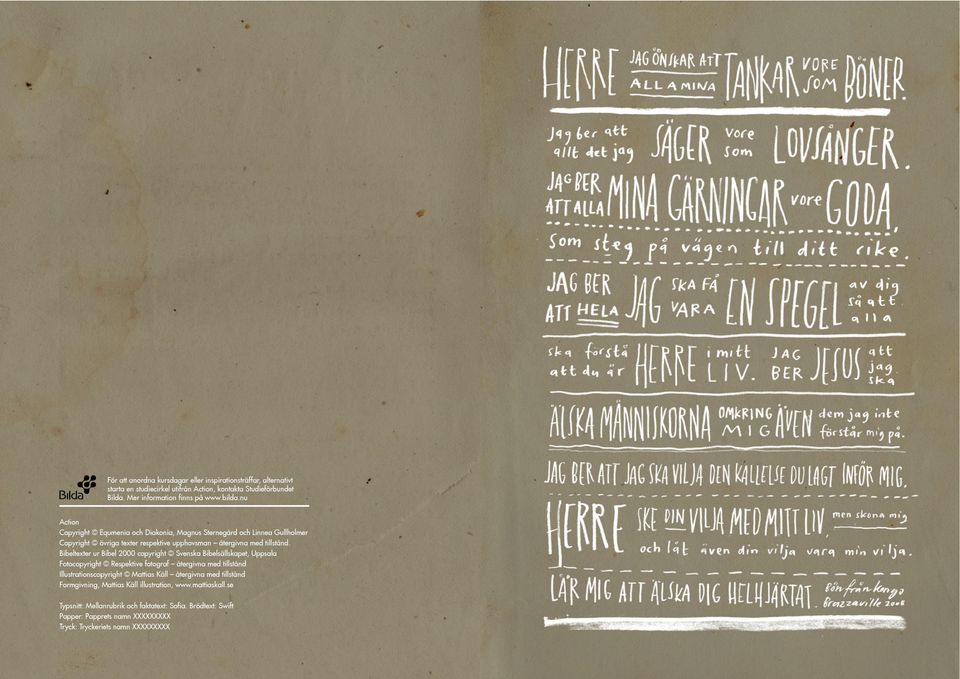 För att anordna kursdagar eller inspirationsträffar, alternativt
starta en studiecirkel utifrån Action, kontakta Studieförbundet
Bilda. Mer information finns på www.bilda.nu
Bilda
Action
Copyright © Equmenia och Diakonia, Magnus Sternegård och Linnea Gullholmer
Copyright © övriga texter respektive upphovsman – återgivna med tillstånd.
Bibeltexter ur Bibel 2000 copyright © Svenska Bibelsällskapet, Uppsala
Fotocopyright © Respektive fotograf – återgivna med tillstånd
Illustrationscopyright © Mattias Käll – återgivna med tillstånd
Formgivning, Mattias Käll illustration, www.mattiaskall.se
Typsnitt: Mellanrubrik och faktatext: Sofia. Brödtext: Swift
Papper: Papprets namn XXXXXXXXX
Tryck: Tryckeriets namn XXXXXXXXX
HERRE JAG ÖNSKAR ATT ALLA MINA TANKAR VORE SOM BÖNER.
Jag ber att allt det jag SÄGER vore som LOVSÅNGER.
JAG BER ATT ALLA MINA GÄRNINGAR vore GODA,
som steg på vägen till ditt rike.
JAG BER ATT HELA JAG SKA FÅ VARA EN SPEGEL av dig så att alla
ska förstå att du är HERRE i mitt LIV. JAG BER JESUS att jag ska
ÄLSKA MÄNNISKORNA OMKRING MIG ÄVEN dem jag inte förstår mig på.
JAG BER ATT JAG SKA VILJA DEN KALLELSE DU LAGT INFÖR MIG.
HERRE SKE DIN VILJA MED MITT LIV, men skona mig
och låt även din vilja vara min vilja.
LÄR MIG ATT ÄLSKA DIG HELHJÄRTAT. Bön från Kongo Brazzaville 2006